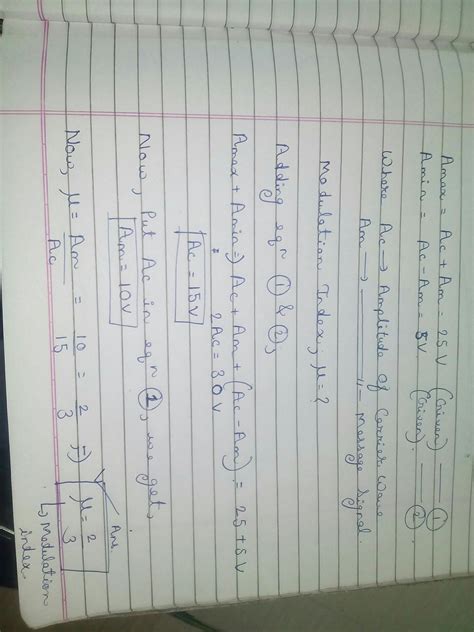 Amax = Ac + Am = 25V (Given) — ①
Amin = Ac - Am = 5V (Given). — ②.
Where Ac → Amplitude of Carrier Wave
Am → —"— Message Signal.
Modulation Index, μ = ?
Adding eqn ① & ②,
Amax + Amin ⇒ Ac + Am + (Ac - Am) = 25 + 5V
2Ac = 30V
Ac = 15V
Now, Put Ac in eqn ①, we get,
Am = 10V
Now, μ = Am/Ac = 10/15 = 2/3 ⇒ μ = 2/3
Ans
↳ Modulation
index.